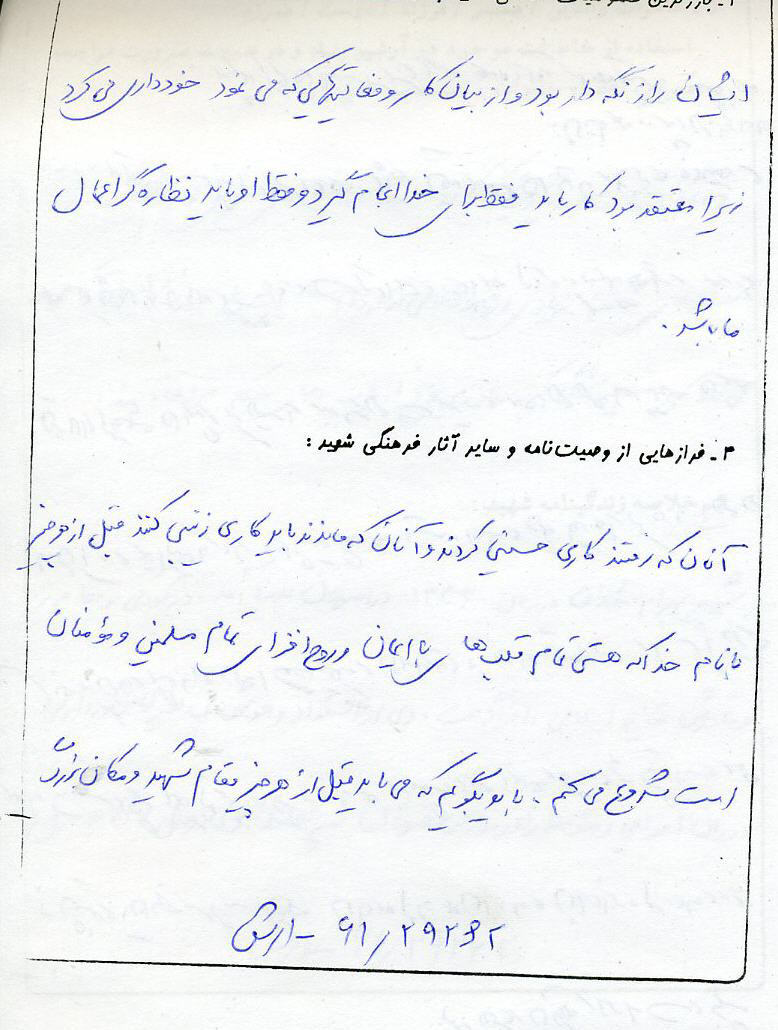 ایشان رازنگه دار بود و از بیان کار و فعالیتهایی که می نمود خودداری می کرد
زیرا معتقد بود کار باید فقط برای خدا انجام گیرد و فقط او باید نظاره گر اعمال
ما باشد.
۳ـ فرازهایی از وصیت‌نامه و سایر آثار فرهنگی شهید:
آنان که رفتند کاری حسینی کردند و آنان که ماندند باید کاری زینبی کنند قبل از هر چیز
با نام خدا که هستی تمام قلب های با ایمان و روح افزای تمام مسلمین و مؤمنان
است شروع می کنم. باید بگویم که می باید قبل از هر چیز مقام شهید و مکان بزرگ